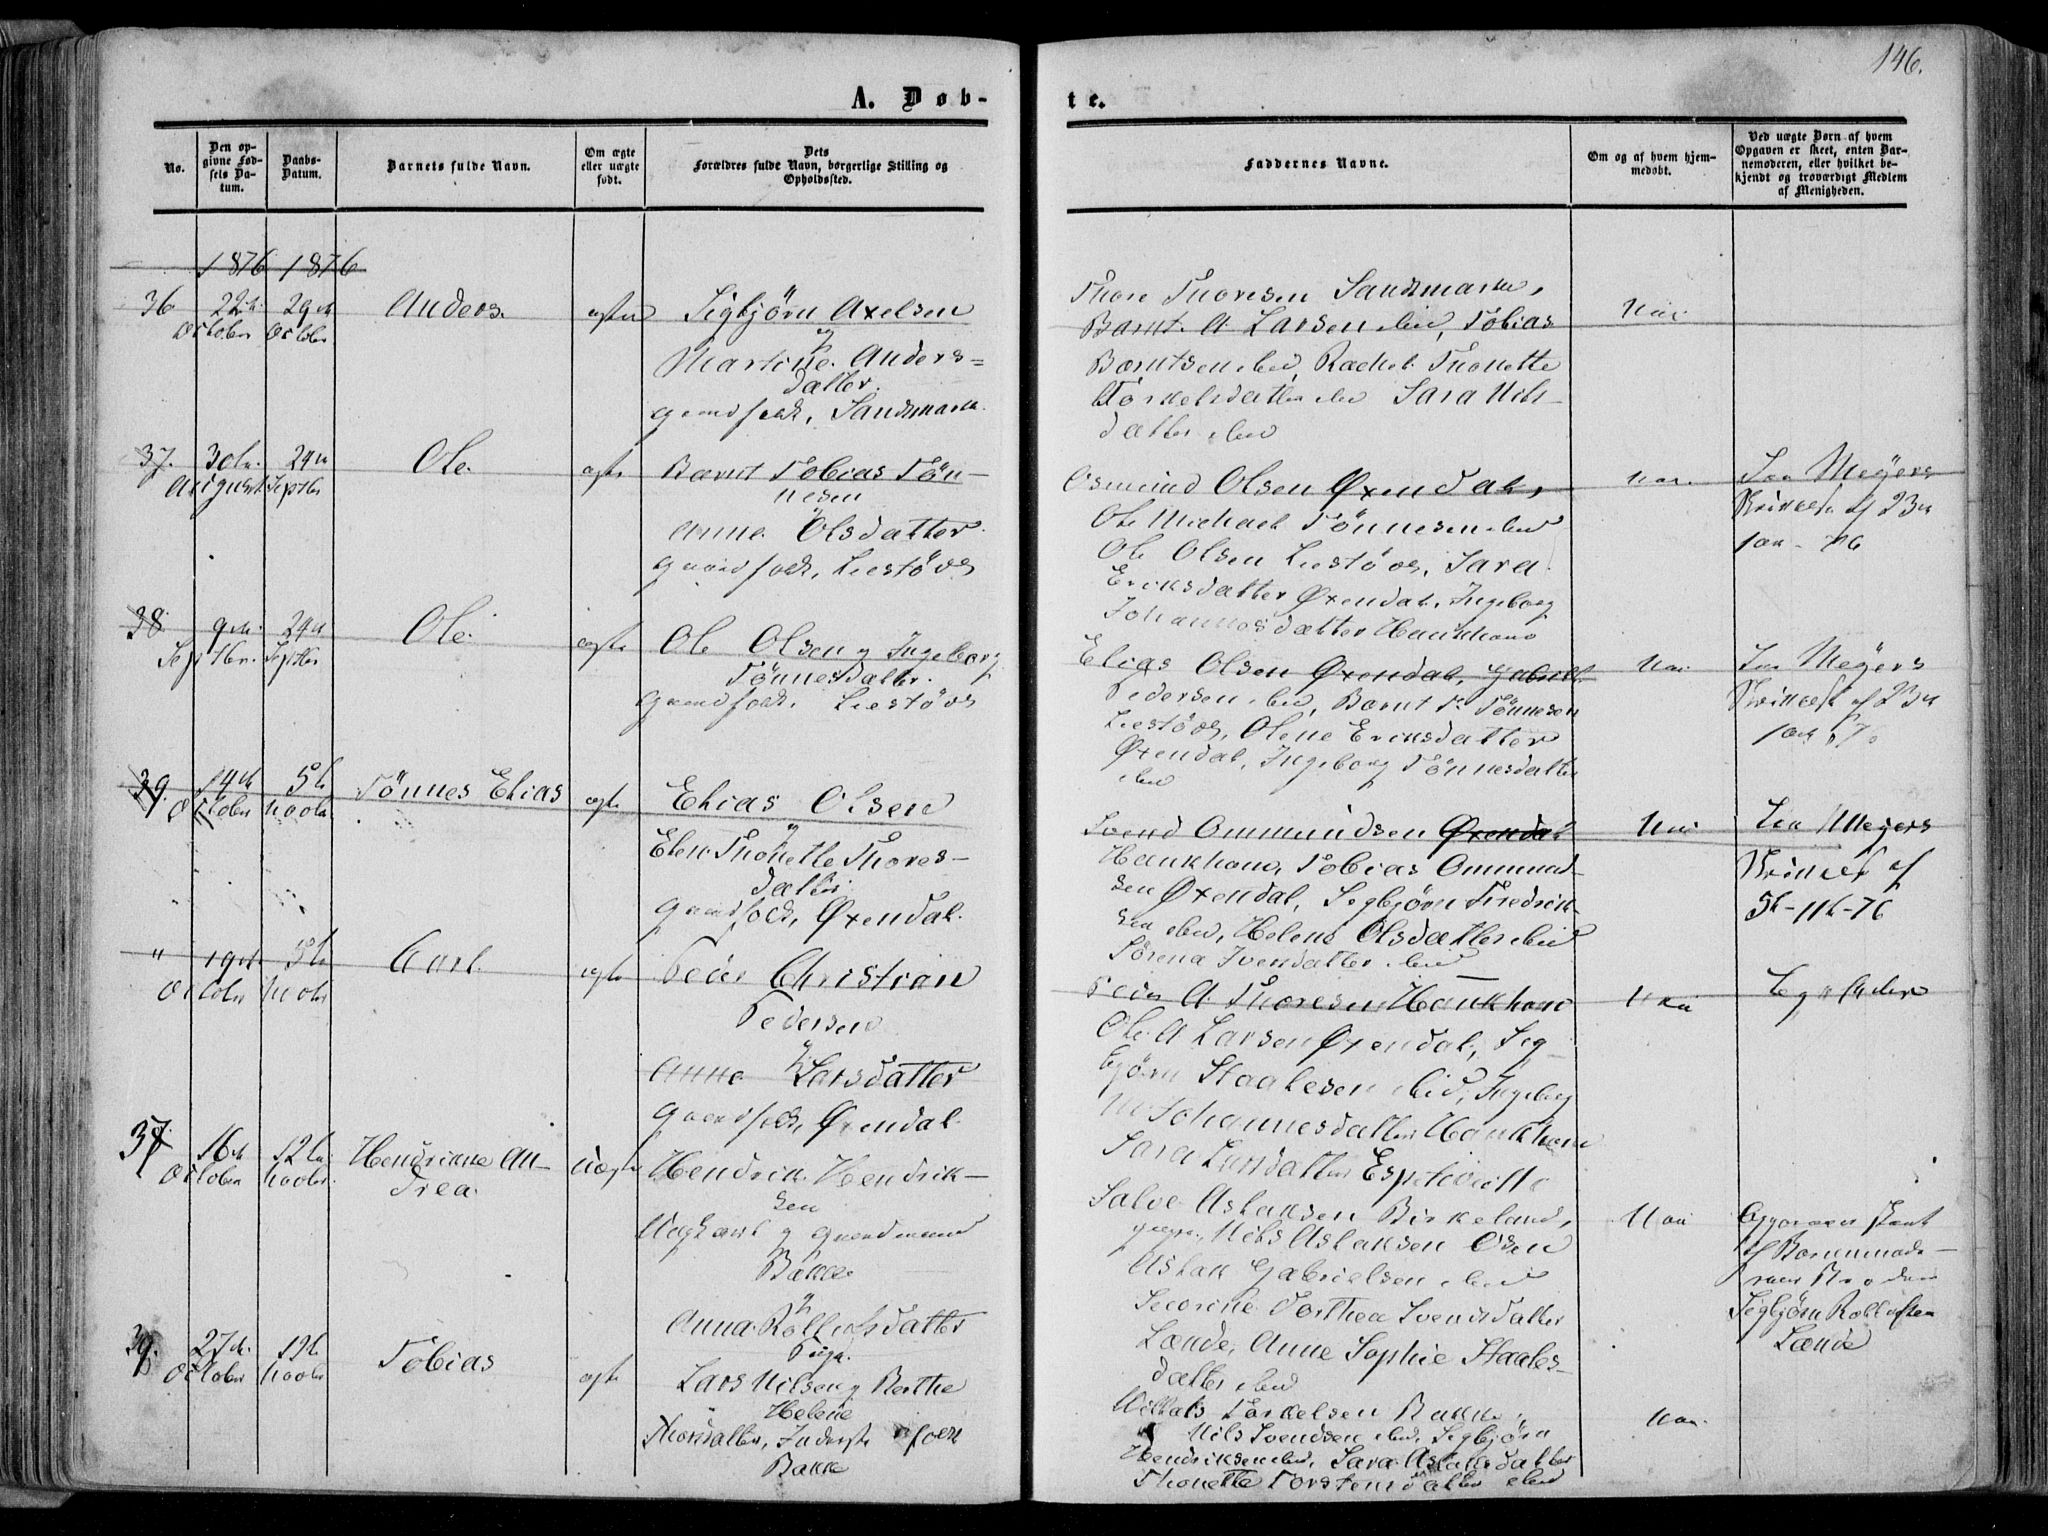 146.
A. Døb-
te.
No.
Den op-
givne Fød-
sels Da-
tum.
Daabs-
Datum.
Barnets fulde Navn.
Om ægte
eller uægte
født.
Dets
Forældres fulde Navn, borgerlige Stilling og
Opholdssted.
Faddernes Navne.
Om og af hvem hjem-
medøbt.
Ved uægte Børn af hvem
Opgaven er skeet, enten Bar-
nemoderen, eller hvilket be-
kjendt og troværdigt Medlem
af Menigheden.
1876 1876
36
22
October
29
October
Anders.
ægte
Sigbjørn Axelsen
og
Martine Anders=
datter.
Gaardfolk, Sandsmark
Thore Thoresen Sandsmark,
Bernt A. Larsen ibid, Tobias
Berntsen ibid, Rachel Thonette
Torkelsdatter ibid Sara Nils-
datter ibid
Nei
37.
30te
August
24
Septbr
Ole.
ægte
Bernt Tobias Tön-
nesen
og
Anne Olsdatter
Gaardfolk, Liestöl
Osmund Olsen Øxendal,
Ole Michael Tönnesen ibid
Ole Olsen Liestöl, Sara
Eriksdatter Øxendal, Ingeborg
Johannesdatter Haukhom
Nei
Meyers
af 23
76
38.
9de
Septbr.
24
Septbr
Ole.
ægte
Ole Olsen og Ingeborg
Tönnesdatter.
Gaardfolk, Liestöl
Elias Olsen Øxendal, Gabriel
Pedersen ibid, Bernt T. Tönnesen
Liestöl, Olene Eriksdatter
Øxendal, Ingeborg Tönnesdatter
ibid
Nei
Meyers
af 23
39.
14de
October
5te
Novbr
Tönnes Elias
ægte
Elias Olsen
og
Elen Thonette Thores-
datter
Gaardfolk, Øxendal.
Svend Ommundsen Øxendal
Haukhom, Tobias Ommund-
sen Øxendal, Sigbjørn Fredrik-
sen ibid, Helene Olsdatter ibid
Sörena Iversdatter ibid
Nei
Meyers
af
5te-11te-76
"
19de
October
5te
Novbr
Carl.
ægte
Peder Christian
Pedersen
og
Anne Larsdatter
Gaardfolk, Øxendal.
Peder A. Thoresen Haukhom
Ole A Larsen Øxendal, Sig-
bjørn Staalesen ibid, Ingeborg
M. Johannesdatter Haukhom
Sara Larsdatter
Nei
37
16de
October
12te
Novbr.
Hendrikke An-
drea.
Uægte
Hendrik Hendrik-
sen
Ungkarl og Gaardmand
Bakke
og
Anna Rollefsdatter
Pige.
Salve Aslaksen Birkeland,
Nils Aslaksen Osen
Aslak Gabrielsen ibid
Secorine Dorthea Svendsdatter
Lænde, Anne Sophie Staales-
datter ibid
Nei
af Barnemode-
rens Broder
Sigbjørn Rollefsen
Lænde
39.
27de
October
12te
Novbr
Tobias
ægte
Lars Nilsen og Berthe
Helene
Thorsdatter, Inderstefolk
Bakke
Torkelsen Bakke,
Nils Svendsen ibid, Sigbjørn
Hendriksen ibid, Sara Aslaksdatter
Thonette Torstensdatter ibid
Nei